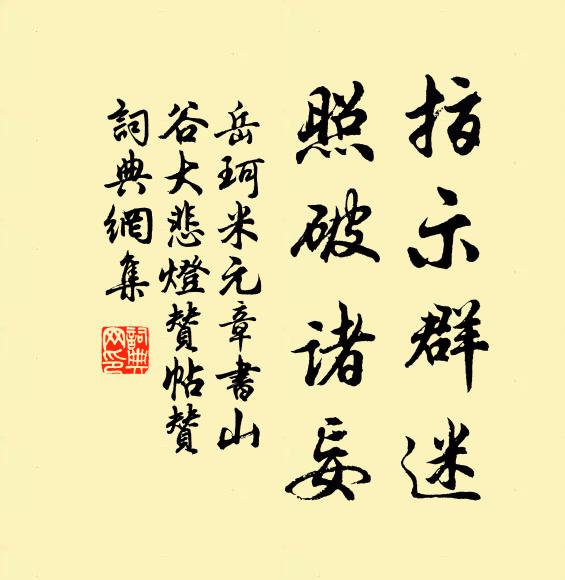 指示群迷
照破诸妄
岳珂米元章書山
谷大悲燈赞帖赞
詞典網集
詞典
网印